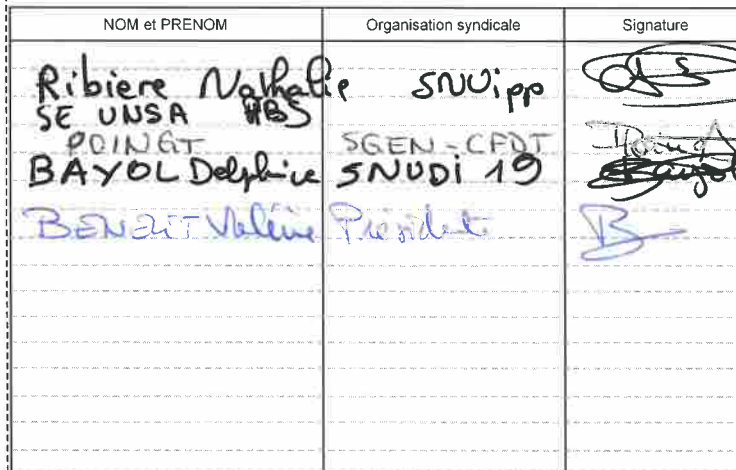 NOM et PRENOM Organisation syndicale Signature
Ribiere Nathalie SNUipp
SE UNSA ABS
POINGT SGEN-CFDT Poingt
BAYOL Delphine SNUDI 19 Bayol
BENEZIT Valérie Présidente B